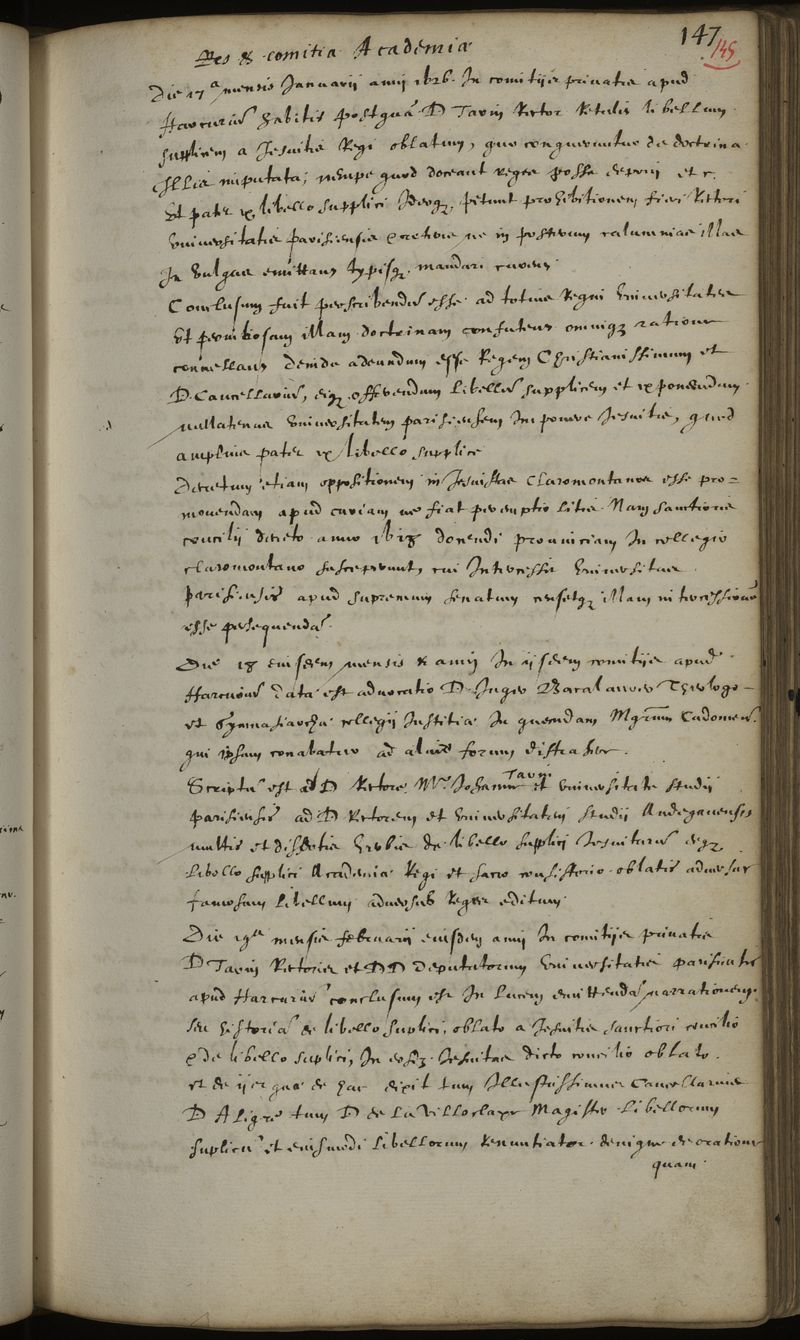 147
145
Res & comitia Academiæ
Die 17ª mensis Januarii anni 1626. In comitijs privatis apud
Harcuriũ habitis postquã D Tarin Rector Retulit libellum
supplicem a Jesuitis Regi oblatum, quo conqueruntur de doctrina
Illis imputata; nempe quod doceant Reges posse deponi et c.
Ut patet ex libello supplici Ideoq; petunt prohibitionem fieri Rectori
Universitatis parisiensis ne in posterum calumnias illas
In vulgus emittant typisq; mandari curent
Conclusum fuit perscribendũ esse ad totius Regni Universitates
Ut perniciosam illam doctrinam confutent omniq; ratione
convellant deinde adeundum esse Regem Christianissimum et
D. Cancellariũ, eiq; offerendum libellũ supplicem et exponendum
nullatenus Universitatem parisiensem Imponere Jesuitis, quod
amplius patet ex libello supplice
Decretum etiam oppositionem in Jesuitas Claromontanos esse pro=
movendam apud curiam ne fiat peremptio litis Nam sanctioris
concilij decreto anno 1618 docendi provinciam In collegio
claromontano susceperunt, cui Intercessit Universitas
parisiensis apud supremum senatum censetq; illam intercessionẽ
esse persequendã
Die 18 eiusdem mensis & anni In ijsdem comitijs apud
Harcuriũ data est advocatio D. Baccalaureo Theologo
et Gymnasiarchæ collegij Justitiæ In quemdam Mgrum Cadomens.
qui ipsum conabatur ad aliud forum distrahere.
Scriptũ est a D Rectore Mro Johanne Tarin et universitate studii
parisiensis ad D Rectorem et Universitatem studii Andegavensis
multis et disertis verbis de libello supplici Jesuitarũ deq;
libello supplici Academiæ Regi et sacro consistorio oblatis adversus
famosum libellum adversus Regem editum
Die 19ª mensis februarii eiusdem anni In comitijs privatis
D Tarin Rectoris et DD Deputatorum Universitatis parisiensis
apud Harcuriũ conclusum est In lucem emittendã narrationem
seu historiã de libello suplici, oblato a Jesuitis sanctiori concilio
& de libello suplici, In eosq; Jesuitas dicto concilio oblato.
et de ijs quæ de hac dixit tum Illustrissimus Cancellarius
D Aligre tum D de La Villoclaye Magister Libellorum
suplicũ et eiusmodi Libellorum Renuntiator. denique de oratione
quam